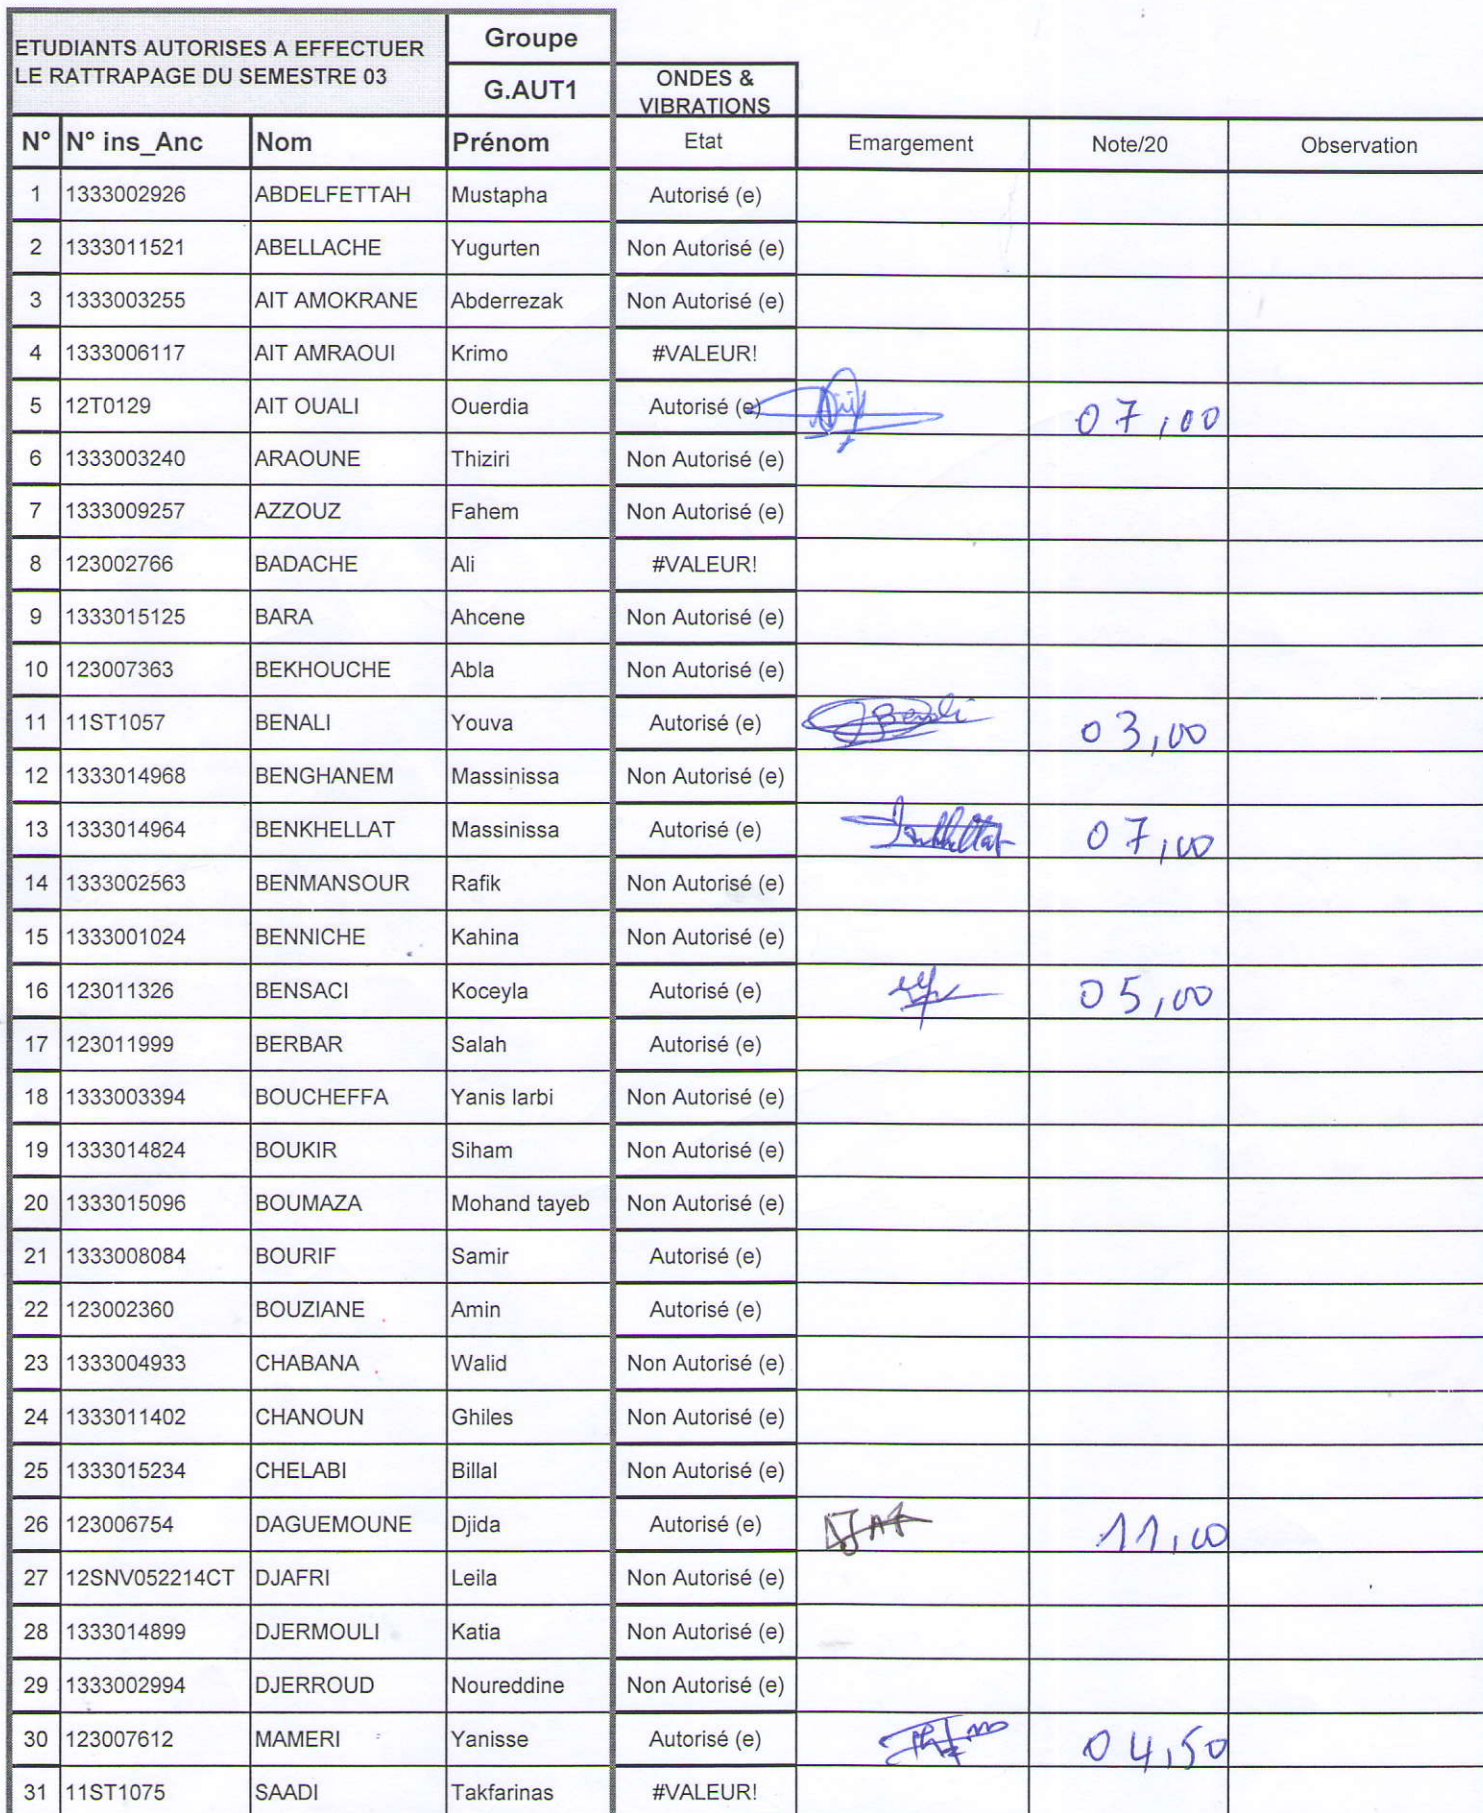 ETUDIANTS AUTORISES A EFFECTUER LE RATTRAPAGE DU SEMESTRE 03
Groupe
G.AUT1
ONDES & VIBRATIONS
N° N° ins_Anc Nom Prénom Etat Emargement Note/20 Observation
1 1333002926 ABDELFETTAH Mustapha Autorisé (e)
2 1333011521 ABELLACHE Yugurten Non Autorisé (e)
3 1333003255 AIT AMOKRANE Abderrezak Non Autorisé (e)
4 1333006117 AIT AMRAOUI Krimo #VALEUR!
5 12T0129 AIT OUALI Ouerdia Autorisé (e) 07,00
6 1333003240 ARAOUNE Thiziri Non Autorisé (e)
7 1333009257 AZZOUZ Fahem Non Autorisé (e)
8 123002766 BADACHE Ali #VALEUR!
9 1333015125 BARA Ahcene Non Autorisé (e)
10 123007363 BEKHOUCHE Abla Non Autorisé (e)
11 11ST1057 BENALI Youva Autorisé (e) 03,00
12 1333014968 BENGHANEM Massinissa Non Autorisé (e)
13 1333014964 BENKHELLAT Massinissa Autorisé (e) 07,00
14 1333002563 BENMANSOUR Rafik Non Autorisé (e)
15 1333001024 BENNICHE Kahina Non Autorisé (e)
16 123011326 BENSACI Koceyla Autorisé (e) 05,00
17 123011999 BERBAR Salah Autorisé (e)
18 1333003394 BOUCHEFFA Yanis larbi Non Autorisé (e)
19 1333014824 BOUKIR Siham Non Autorisé (e)
20 1333015096 BOUMAZA Mohand tayeb Non Autorisé (e)
21 1333008084 BOURIF Samir Autorisé (e)
22 123002360 BOUZIANE Amin Autorisé (e)
23 1333004933 CHABANA Walid Non Autorisé (e)
24 1333011402 CHANOUN Ghiles Non Autorisé (e)
25 1333015234 CHELABI Billal Non Autorisé (e)
26 123006754 DAGUEMOUNE Djida Autorisé (e) 11,00
27 12SNV052214CT DJAFRI Leila Non Autorisé (e)
28 1333014899 DJERMOULI Katia Non Autorisé (e)
29 1333002994 DJERROUD Noureddine Non Autorisé (e)
30 123007612 MAMERI Yanisse Autorisé (e) 04,50
31 11ST1075 SAADI Takfarinas #VALEUR!